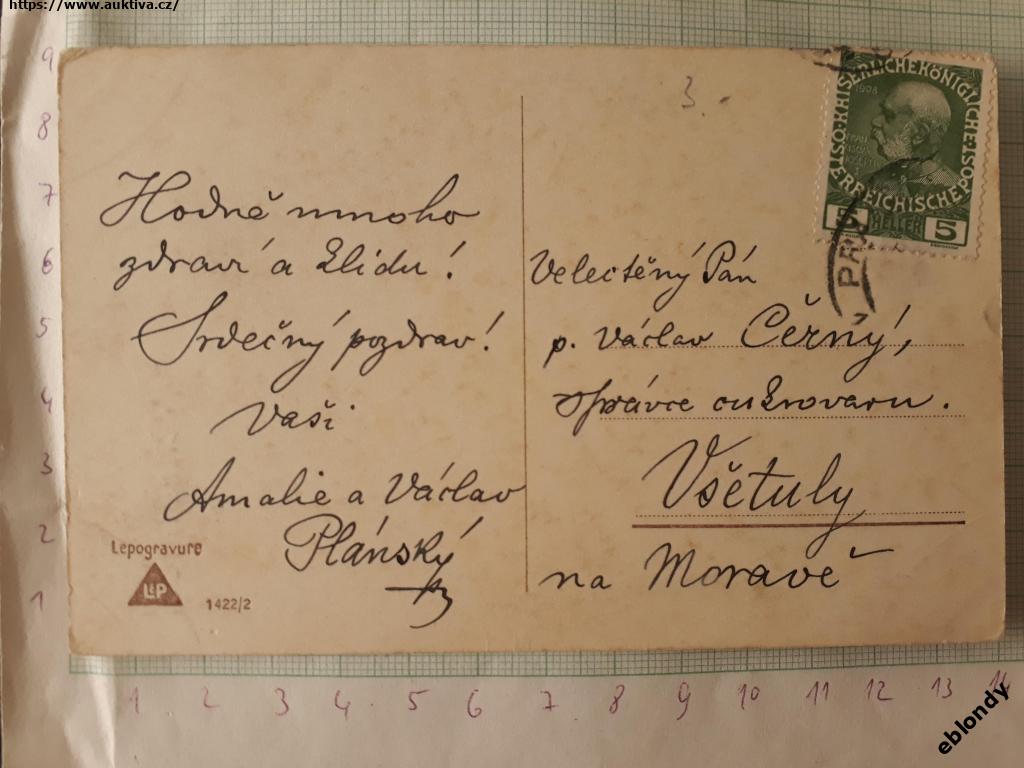 https://www.auktiva.cz/
3.
Hodně mnoho
zdraví a klidu!
Srdečný pozdrav!
Vaši
Amalie a Václav
Plánský
Lepogravure
LEP
1422/2
Velectěný Pán
p. Václav Černý,
správce cukrovaru.
Všetuly
na Moravě
K.K. ÖSTERREICHISCHE POST
KAISERLICHE KÖNIGLICHE
1908
5 HELLER 5
9
8
7
6
5
4
3
2
1
1 2 3 4 5 6 7 8 9 10 11 12 13 14
eblondy